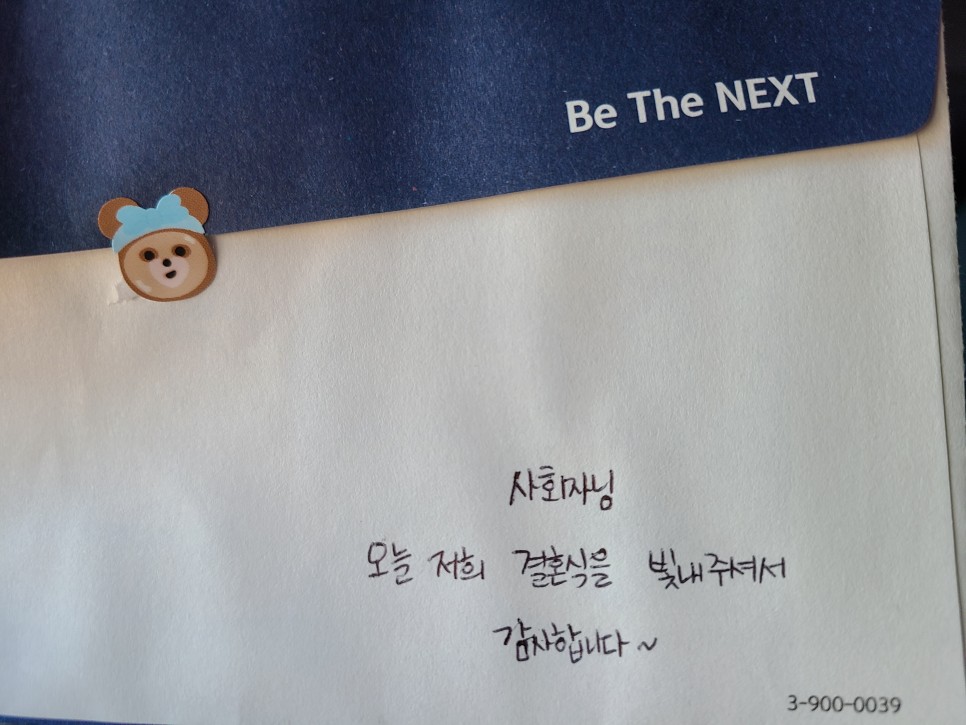 Be The NEXT
사회자님
오늘 저희 결혼식을 빛내주셔서
감사합니다~
3-900-0039